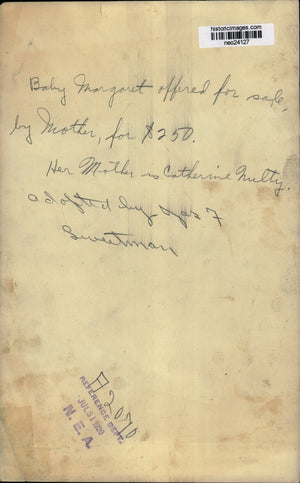 historicimages.com
neo24127
Baby Margaret offered for sale,
by Mother, for $250.
Her Mother is Catherine Nulty.
adopted by Jas F
Sweetman
A2070
REFERENCE DEPT.
JUL 31 1920
N. E. A.